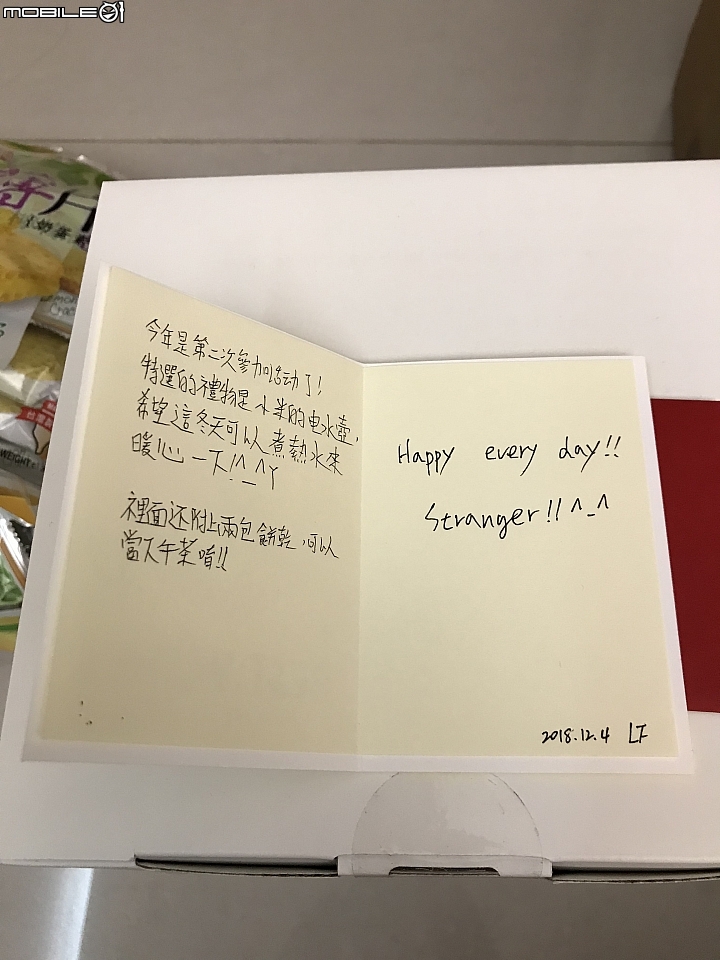 MOBILE01
今年是第二次參加活动了!
特選的禮物是小米的电水壺,
希望這冬天可以煮熱水來
暖心一下!^_^Y
裡面还附上兩包餅乾,可以
當下午茶唷!!
Happy every day!!
Stranger!! ^_^
2018.12.4 LF